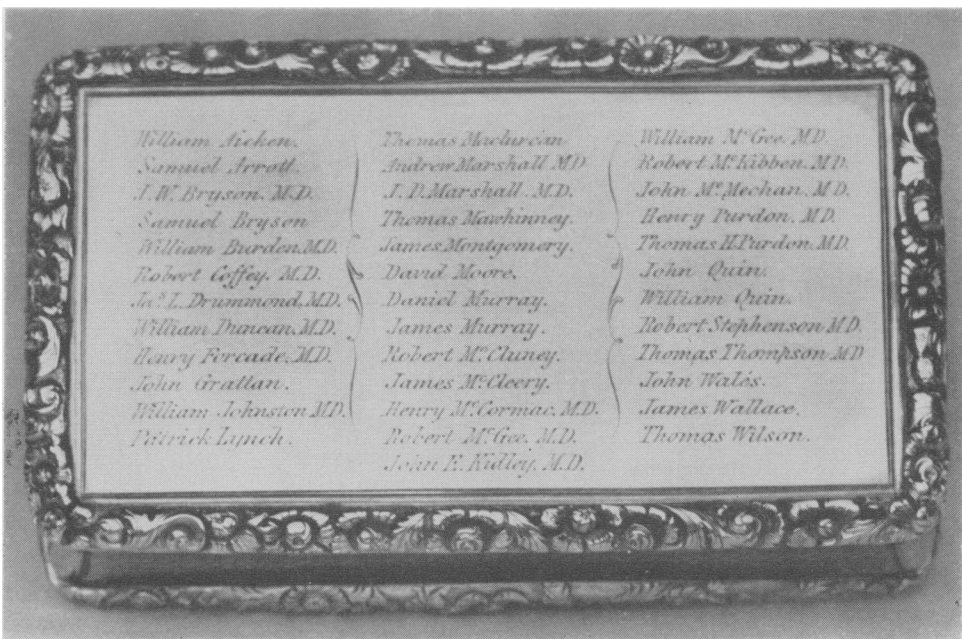 William Aicken.
Samuel Arrott.
J. W. Bryson. M.D.
Samuel Bryson
William Burden. M.D.
Robert Coffey. M.D.
Jas. L. Drummond. M.D.
William Duncan. M.D.
Henry Forcade. M.D.
John Grattan.
William Johnston M.D.
Patrick Lynch.
Thomas
Andrew Marshall MD
J. D. Marshall. M.D.
Thomas Mawhinney.
James Montgomery.
David Moore.
Daniel Murray.
James Murray.
Robert Mc.Cluney.
James Mc.Cleery.
Henry Mc.Cormac. M.D.
Robert Mc.Gee. M.D.
John E. Kidley. M.D.
William Mc.Gee. M.D.
Robert Mc.Kibben. M.D.
John Mc.Mechan. M.D.
Henry Purdon. M.D.
Thomas H. Purdon. M.D.
John Quin.
William Quin.
Robert Stephenson M.D.
Thomas Thompson MD
John Wales.
James Wallace.
Thomas Wilson.